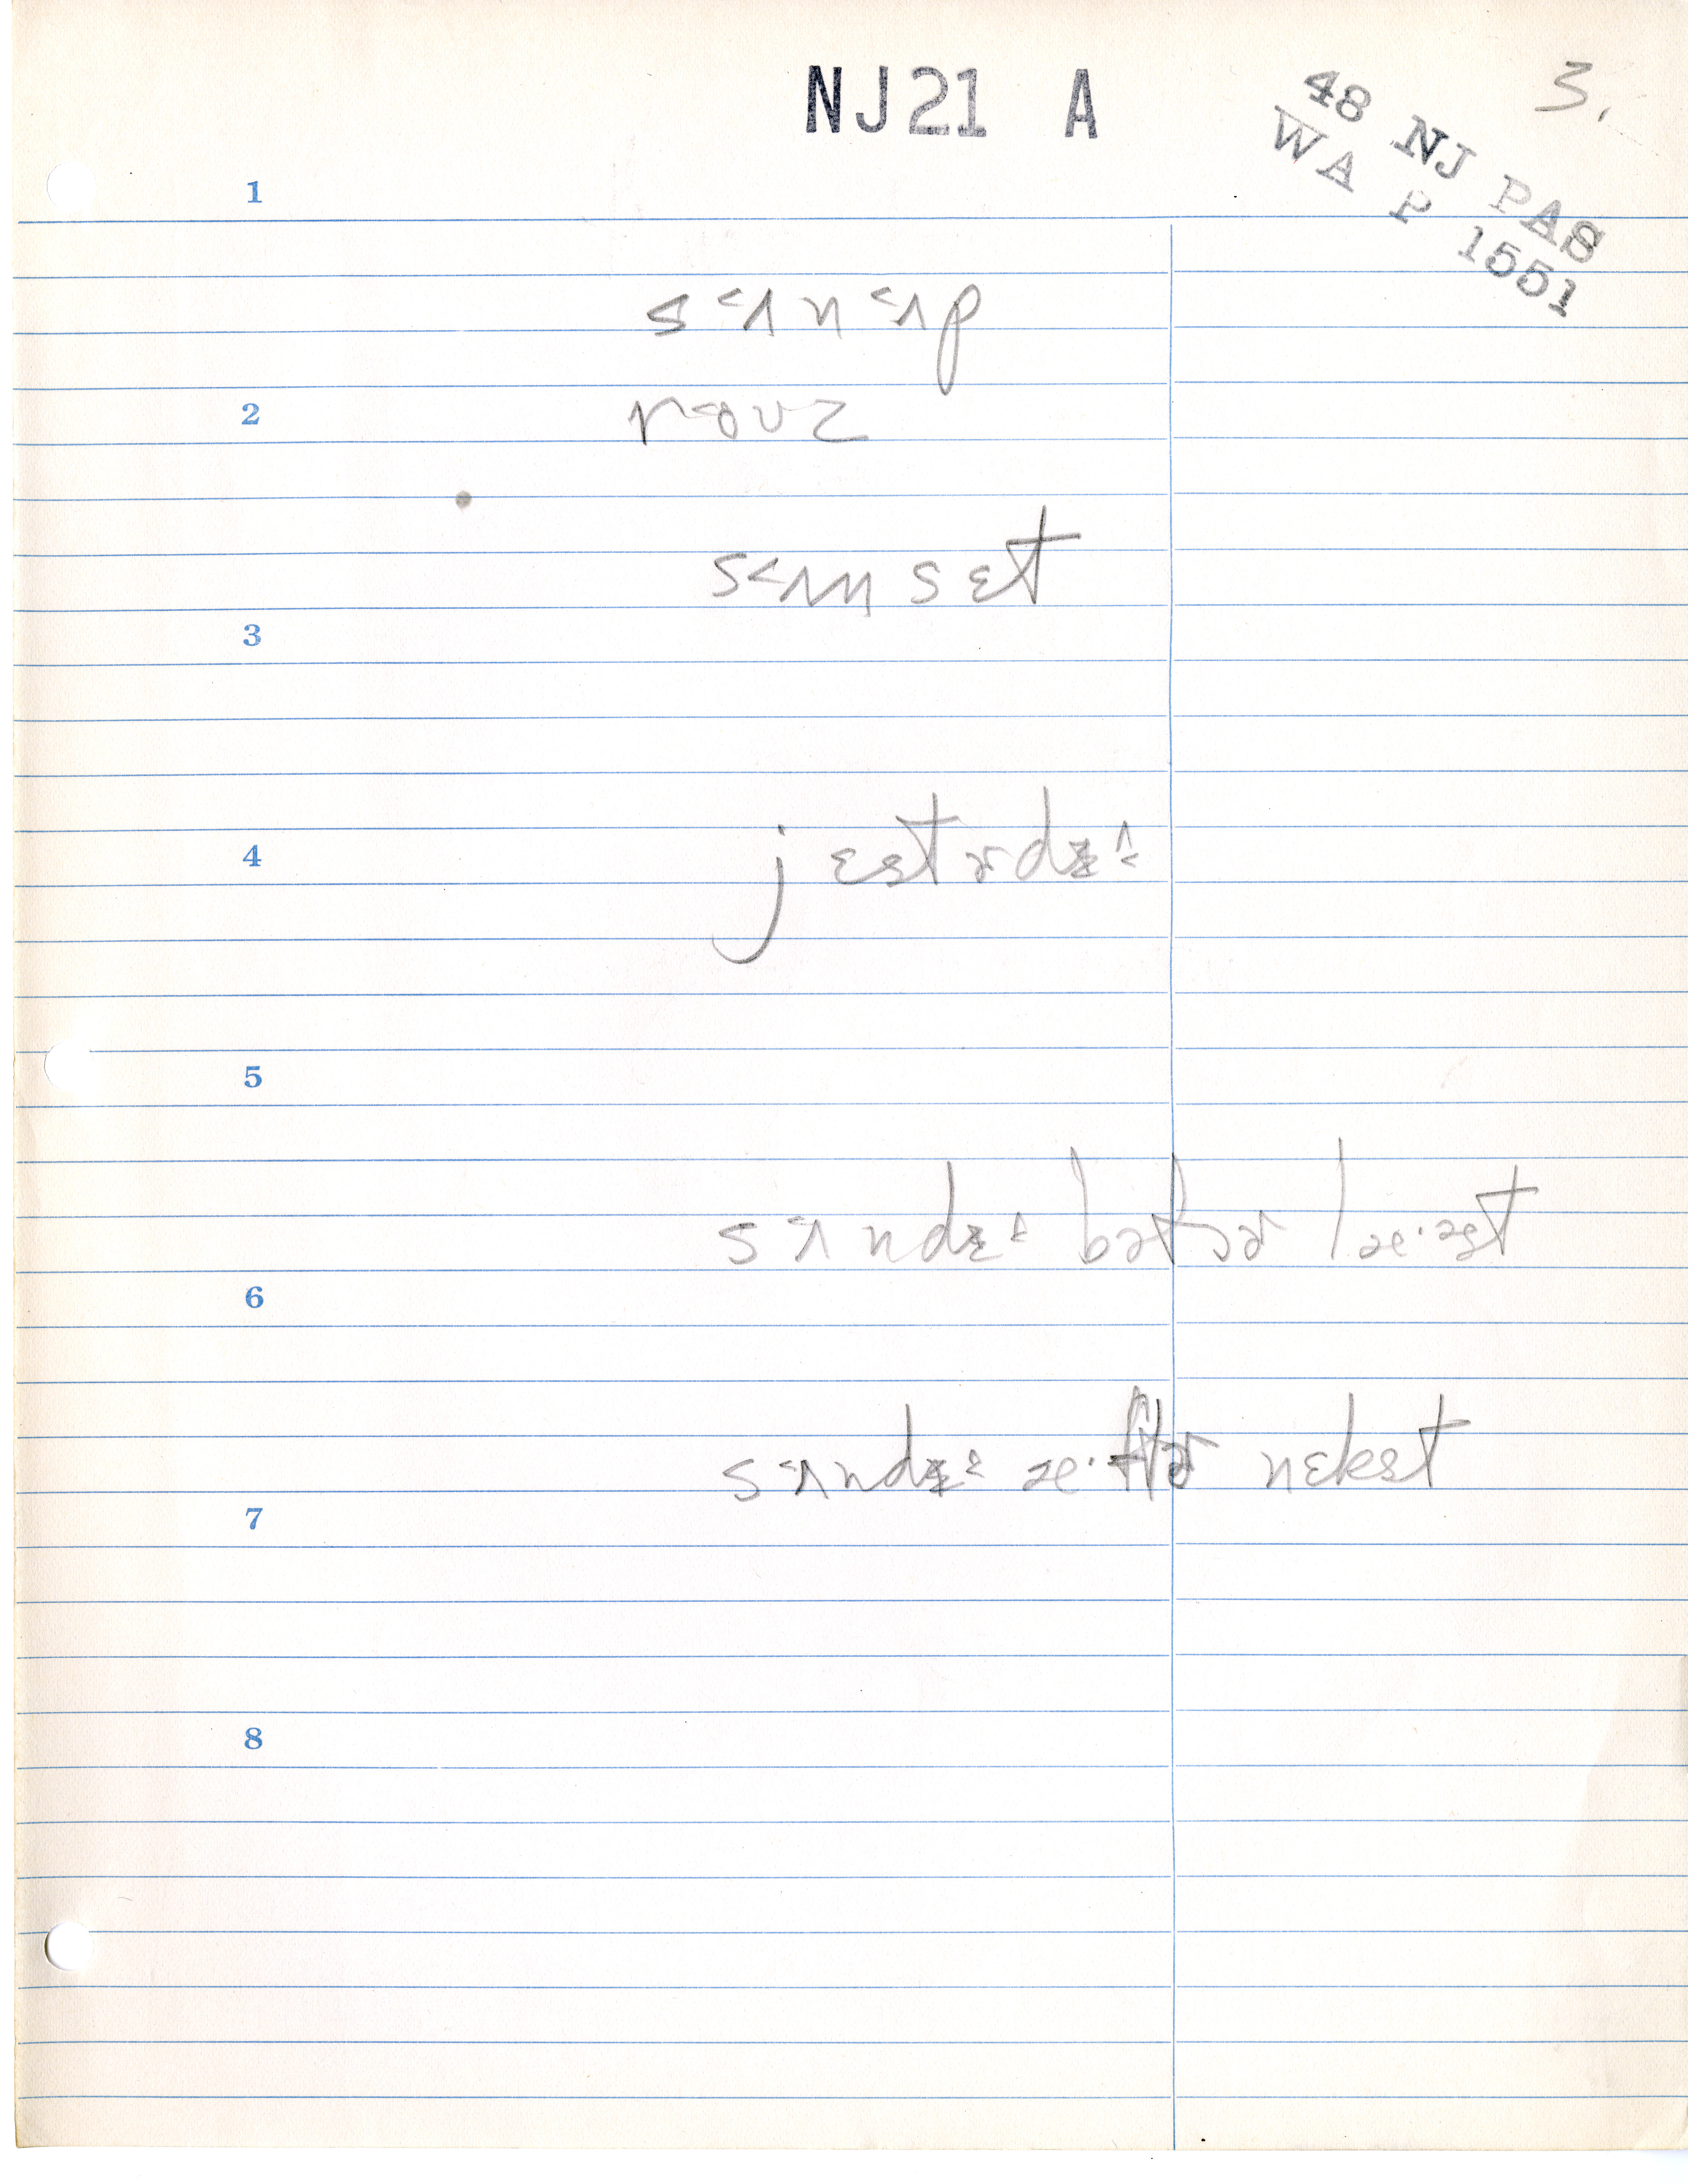 NJ21 A
3.
48 NJ PAS
WA P 1551
1
s˂ʌn˂ʌp
2
r˂oʊz
s˂ʌnsɛt
3
4
jɛstɚdɪ
5
s˂ʌndɪ bəfɔɚ læ·əst
6
s˂ʌndɪ æ·ftɚ nɛkst
7
8